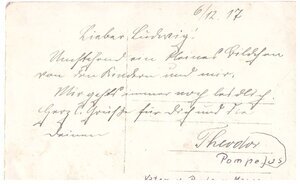 6/12. 17
Lieber Ludwig!
Umstehend ein kleines Bildchen
von den Kindern und mir.
Mir geht's immer noch leidlich
Herzl. Grüße für Dich und die
Deinen
Theodor
Pompejus